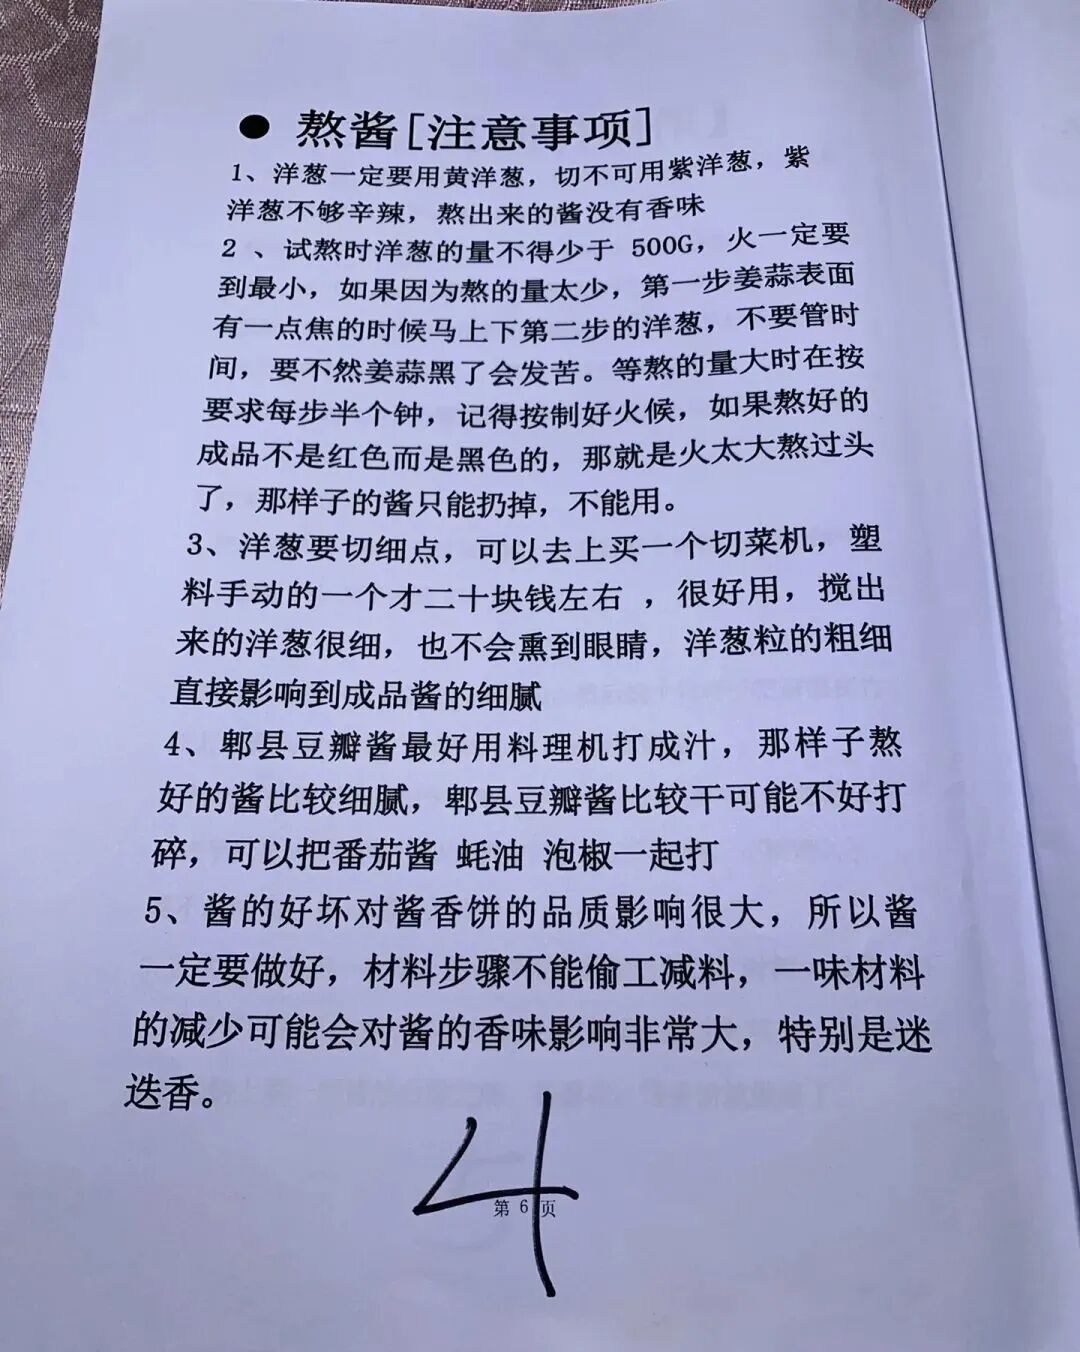 ● 熬酱[注意事项]
1、洋葱一定要用黄洋葱，切不可用紫洋葱，紫
洋葱不够辛辣，熬出来的酱没有香味
2 、试熬时洋葱的量不得少于 500G，火一定要
到最小，如果因为熬的量太少，第一步姜蒜表面
有一点焦的时候马上下第二步的洋葱，不要管时
间，要不然姜蒜黑了会发苦。等熬的量大时在按
要求每步半个钟，记得按制好火候，如果熬好的
成品不是红色而是黑色的，那就是火太大熬过头
了，那样子的酱只能扔掉，不能用。
3、洋葱要切细点，可以去上买一个切菜机，塑
料手动的一个才二十块钱左右 ，很好用，搅出
来的洋葱很细，也不会熏到眼睛，洋葱粒的粗细
直接影响到成品酱的细腻
4、郫县豆瓣酱最好用料理机打成汁，那样子熬
好的酱比较细腻，郫县豆瓣酱比较干可能不好打
碎，可以把番茄酱 蚝油 泡椒一起打
5、酱的好坏对酱香饼的品质影响很大，所以酱
一定要做好，材料步骤不能偷工减料，一味材料
的减少可能会对酱的香味影响非常大，特别是迷
迭香。
4
第 6 页